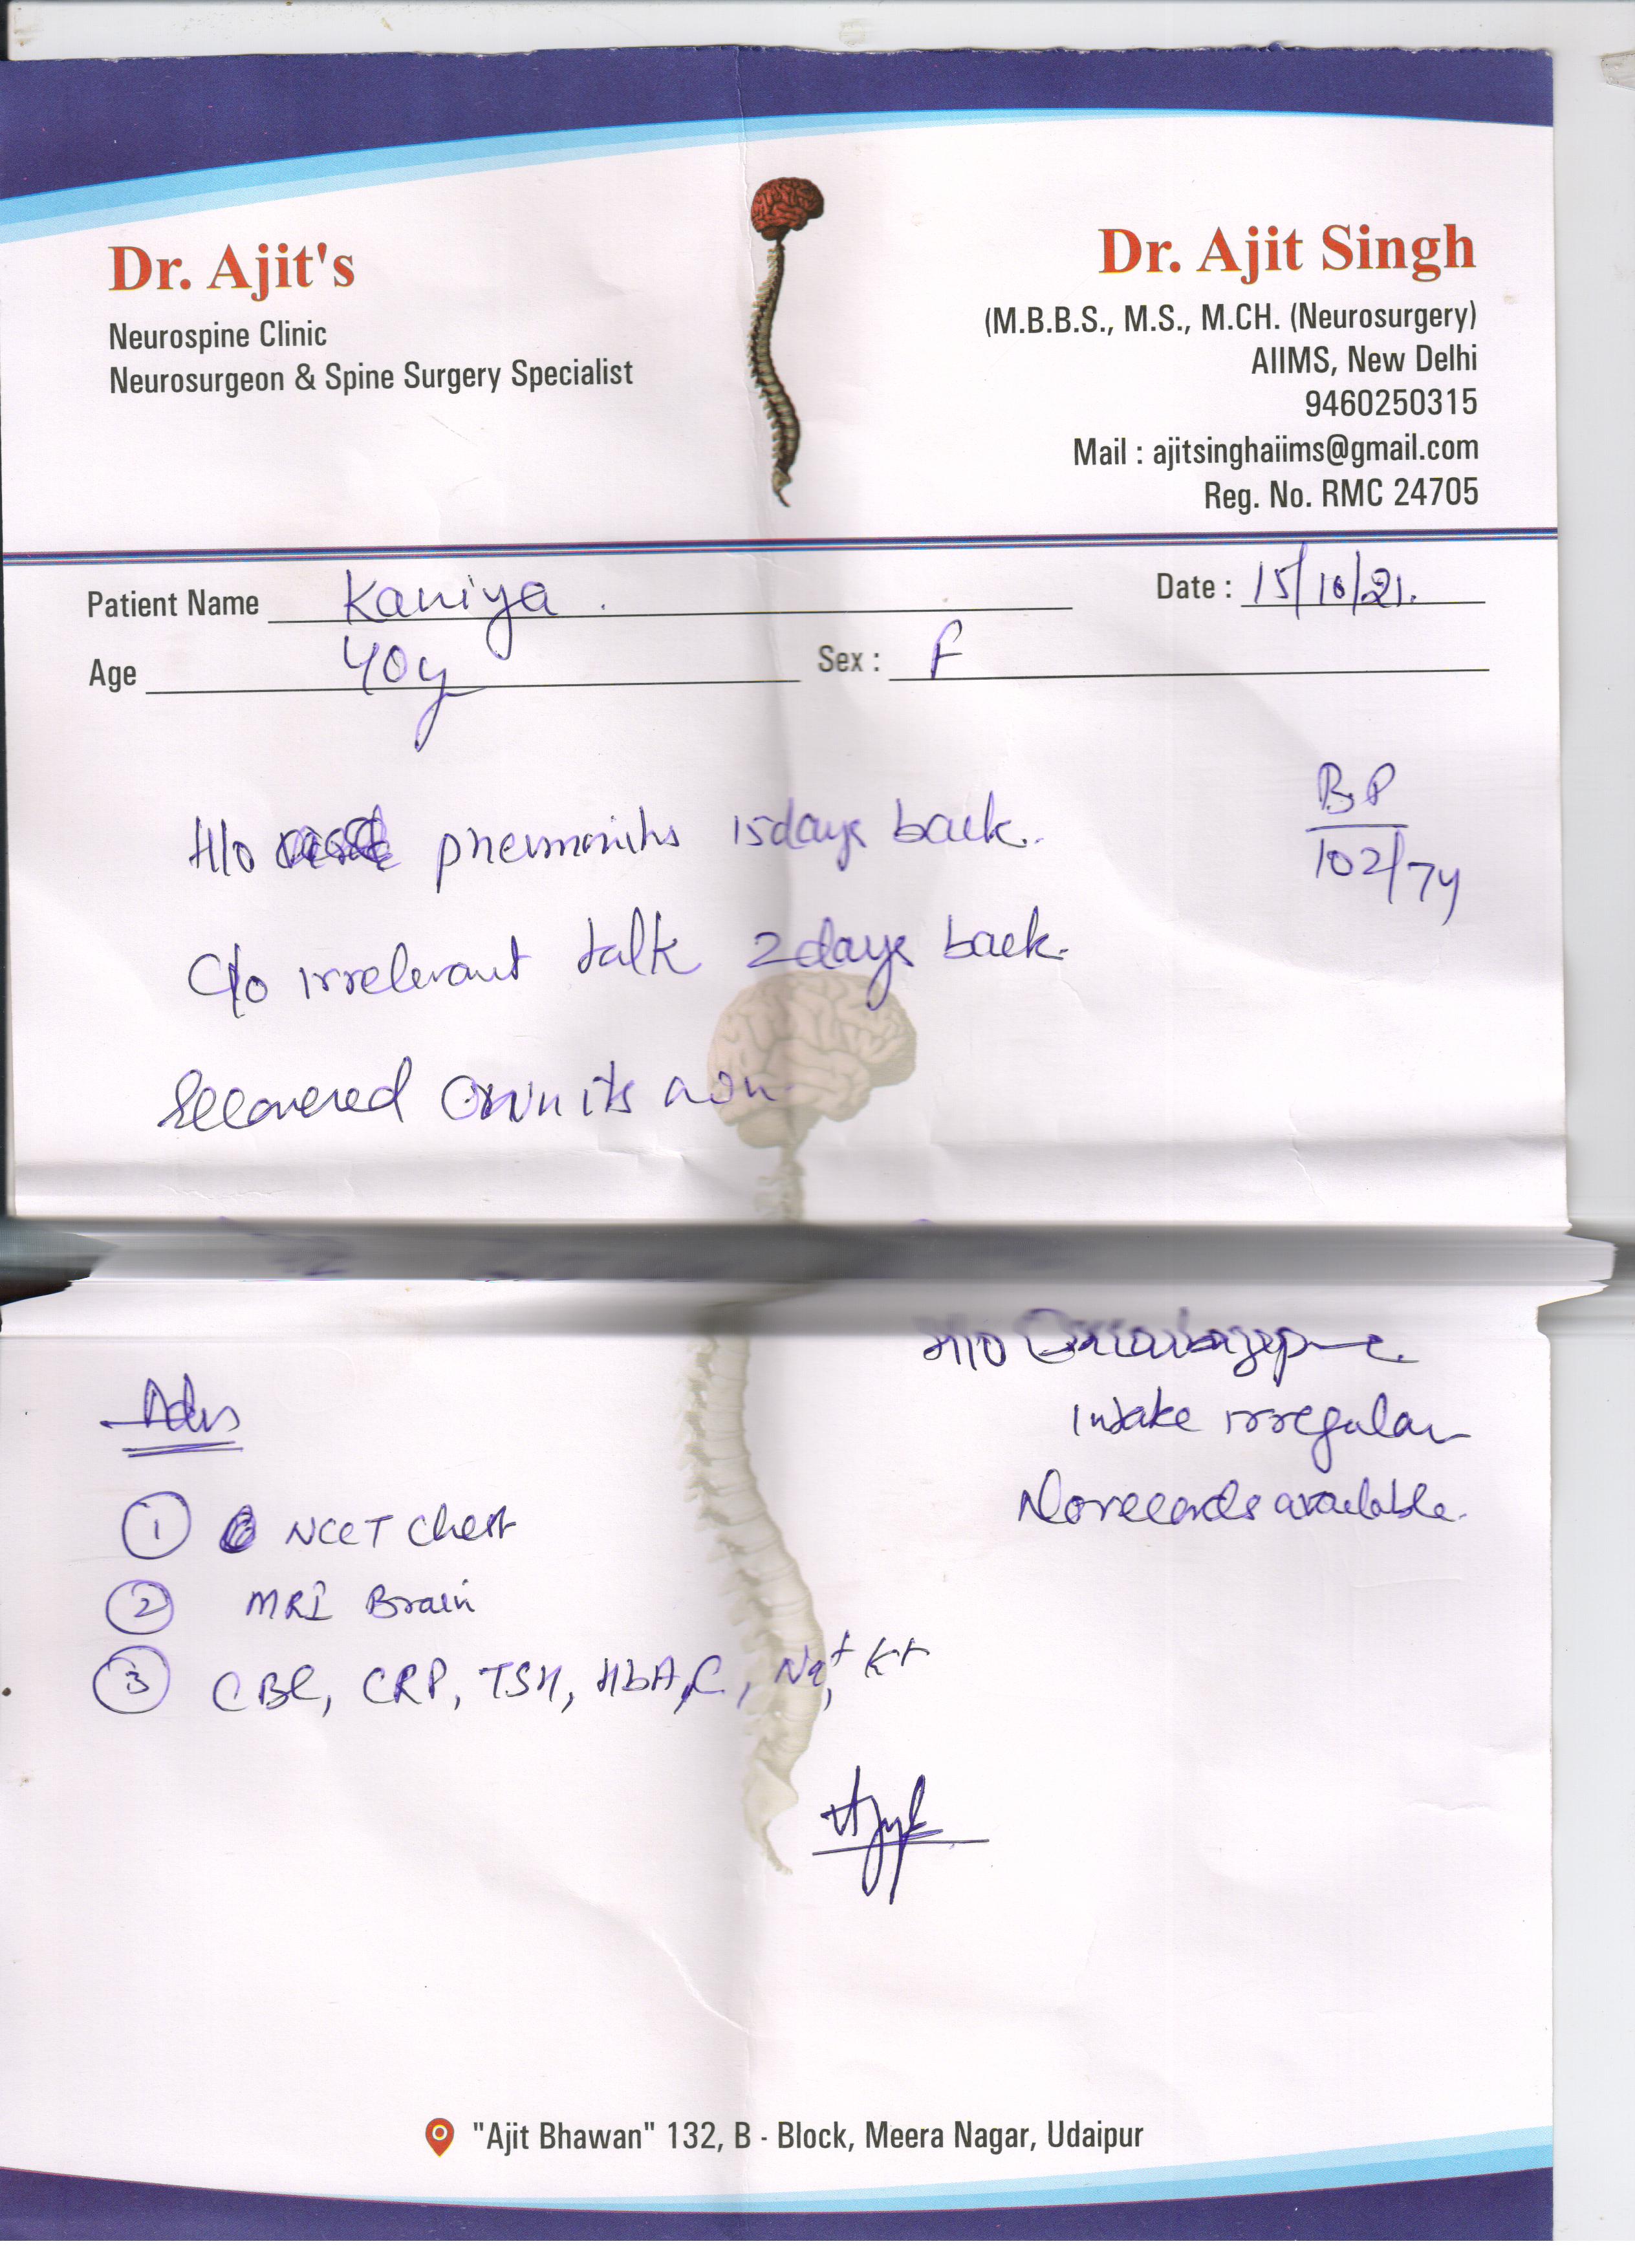 Dr. Ajit's
Neurospine Clinic
Neurosurgeon & Spine Surgery Specialist
Dr. Ajit Singh
(M.B.B.S., M.S., M.CH. (Neurosurgery)
AIIMS, New Delhi
9460250315
Mail : ajitsinghaiims@gmail.com
Reg. No. RMC 24705
Patient Name Kaniya Date : 15/10/21.
Age 40y Sex : F
BP
102/74
H/o pneumonitis 15 days back.
C/o irrelevant talk 2 days back.
Recovered on its own
H/o
Intake irregular
No records available.
Adv
1 NCCT Chest
2 MRI Brain
3 CBC, CRP, TSH, HbA1C, Na+, K+
"Ajit Bhawan" 132, B - Block, Meera Nagar, Udaipur